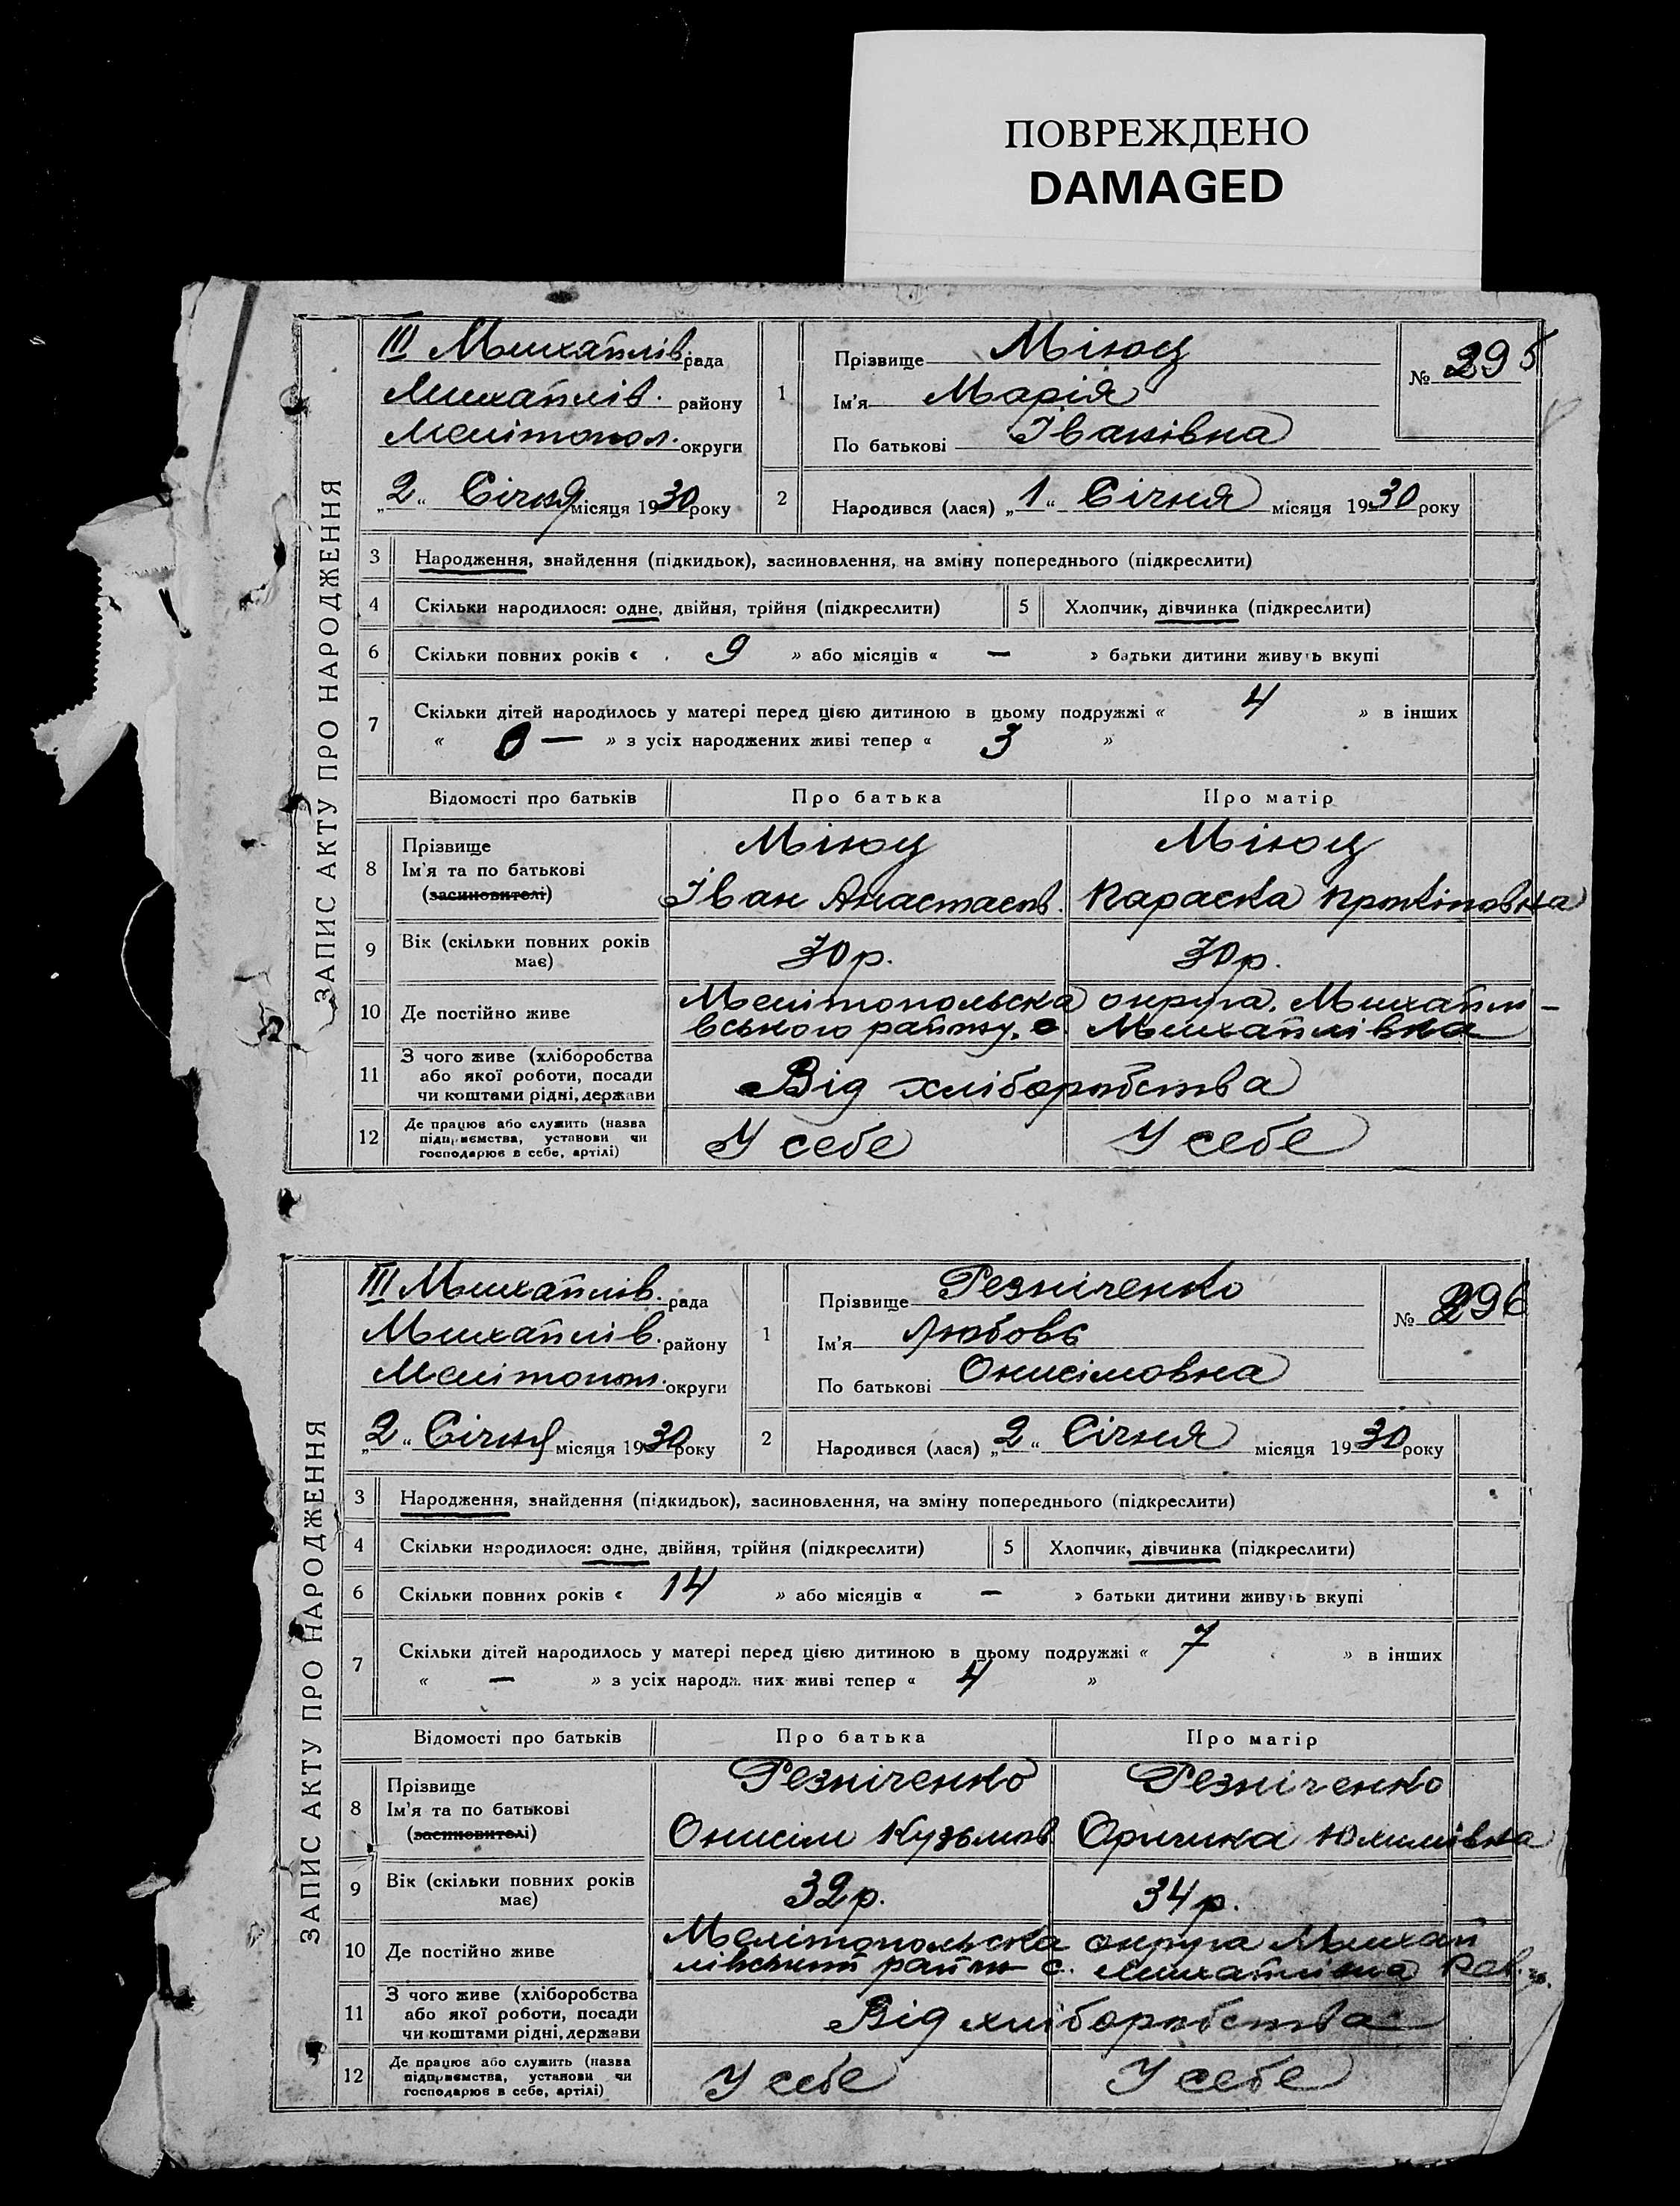 ПОВРЕЖДЕНО
DAMAGED
ЗАПИС АКТУ ПРО НАРОДЖЕННЯ
III Михайлів. рада
Михайлів. району
Мелітопол. округи
„2“ Січня місяця 1930 року
1
Прізвище Міюц
Ім'я Марія
По батькові Іванівна
№ 295
2
Народився (лася) „1“ Січня місяця 1930 року
3 Народження, знайдення (підкидьок), засиновлення, на зміну попереднього (підкреслити)
4 Скільки народилося: одне, двійня, трійня (підкреслити) 5 Хлопчик, дівчинка (підкреслити)
6 Скільки повних років « 9 » або місяців « — » батьки дитини живуть вкупі
7 Скільки дітей народилось у матері перед цією дитиною в цьому подружжі « 4 » в інших
« 0 — » з усіх народжених живі тепер « 3 »
Відомості про батьків Про батька Про матір
8 Прізвище
Ім'я та по батькові
(засиновителі)
Міюц Міюц
Іван Анастасов. Параска
9 Вік (скільки повних років має) 30 р. 30 р.
10 Де постійно живе Мелітопольска округа, Михайлі-
вського району. с. Михайлівка
11 З чого живе (хліборобства
або якої роботи, посади
чи коштами рідні, держави
Від хліборобства
12 Де працює або служить (назва
підприємства, установи чи
господарює в себе, артілі)
У себе У себе
ЗАПИС АКТУ ПРО НАРОДЖЕННЯ
III Михайлів. рада
Михайлів. району
Мелітопол. округи
„2“ Січня місяця 1930 року
1
Прізвище Резніченко
Ім'я Любовь
По батькові Онисімовна
№ 296
2
Народився (лася) „2“ Січня місяця 1930 року
3 Народження, знайдення (підкидьок), засиновлення, на зміну попереднього (підкреслити)
4 Скільки народилося: одне, двійня, трійня (підкреслити) 5 Хлопчик, дівчинка (підкреслити)
6 Скільки повних років « 14 » або місяців « — » батьки дитини живуть вкупі
7 Скільки дітей народилось у матері перед цією дитиною в цьому подружжі « 7 » в інших
« — » з усіх народжених живі тепер « 4 »
Відомості про батьків Про батька Про матір
8 Прізвище
Ім'я та по батькові
(засиновителі)
Резніченко Резніченко
Онисім Кузьмов
9 Вік (скільки повних років має) 32 р. 34 р.
10 Де постійно живе Мелітопольска округа Михай
лівський район с. Михайлівка
11 З чого живе (хліборобства
або якої роботи, посади
чи коштами рідні, держави
Від хліборобства
12 Де працює або служить (назва
підприємства, установи чи
господарює в себе, артілі)
У себе У себе